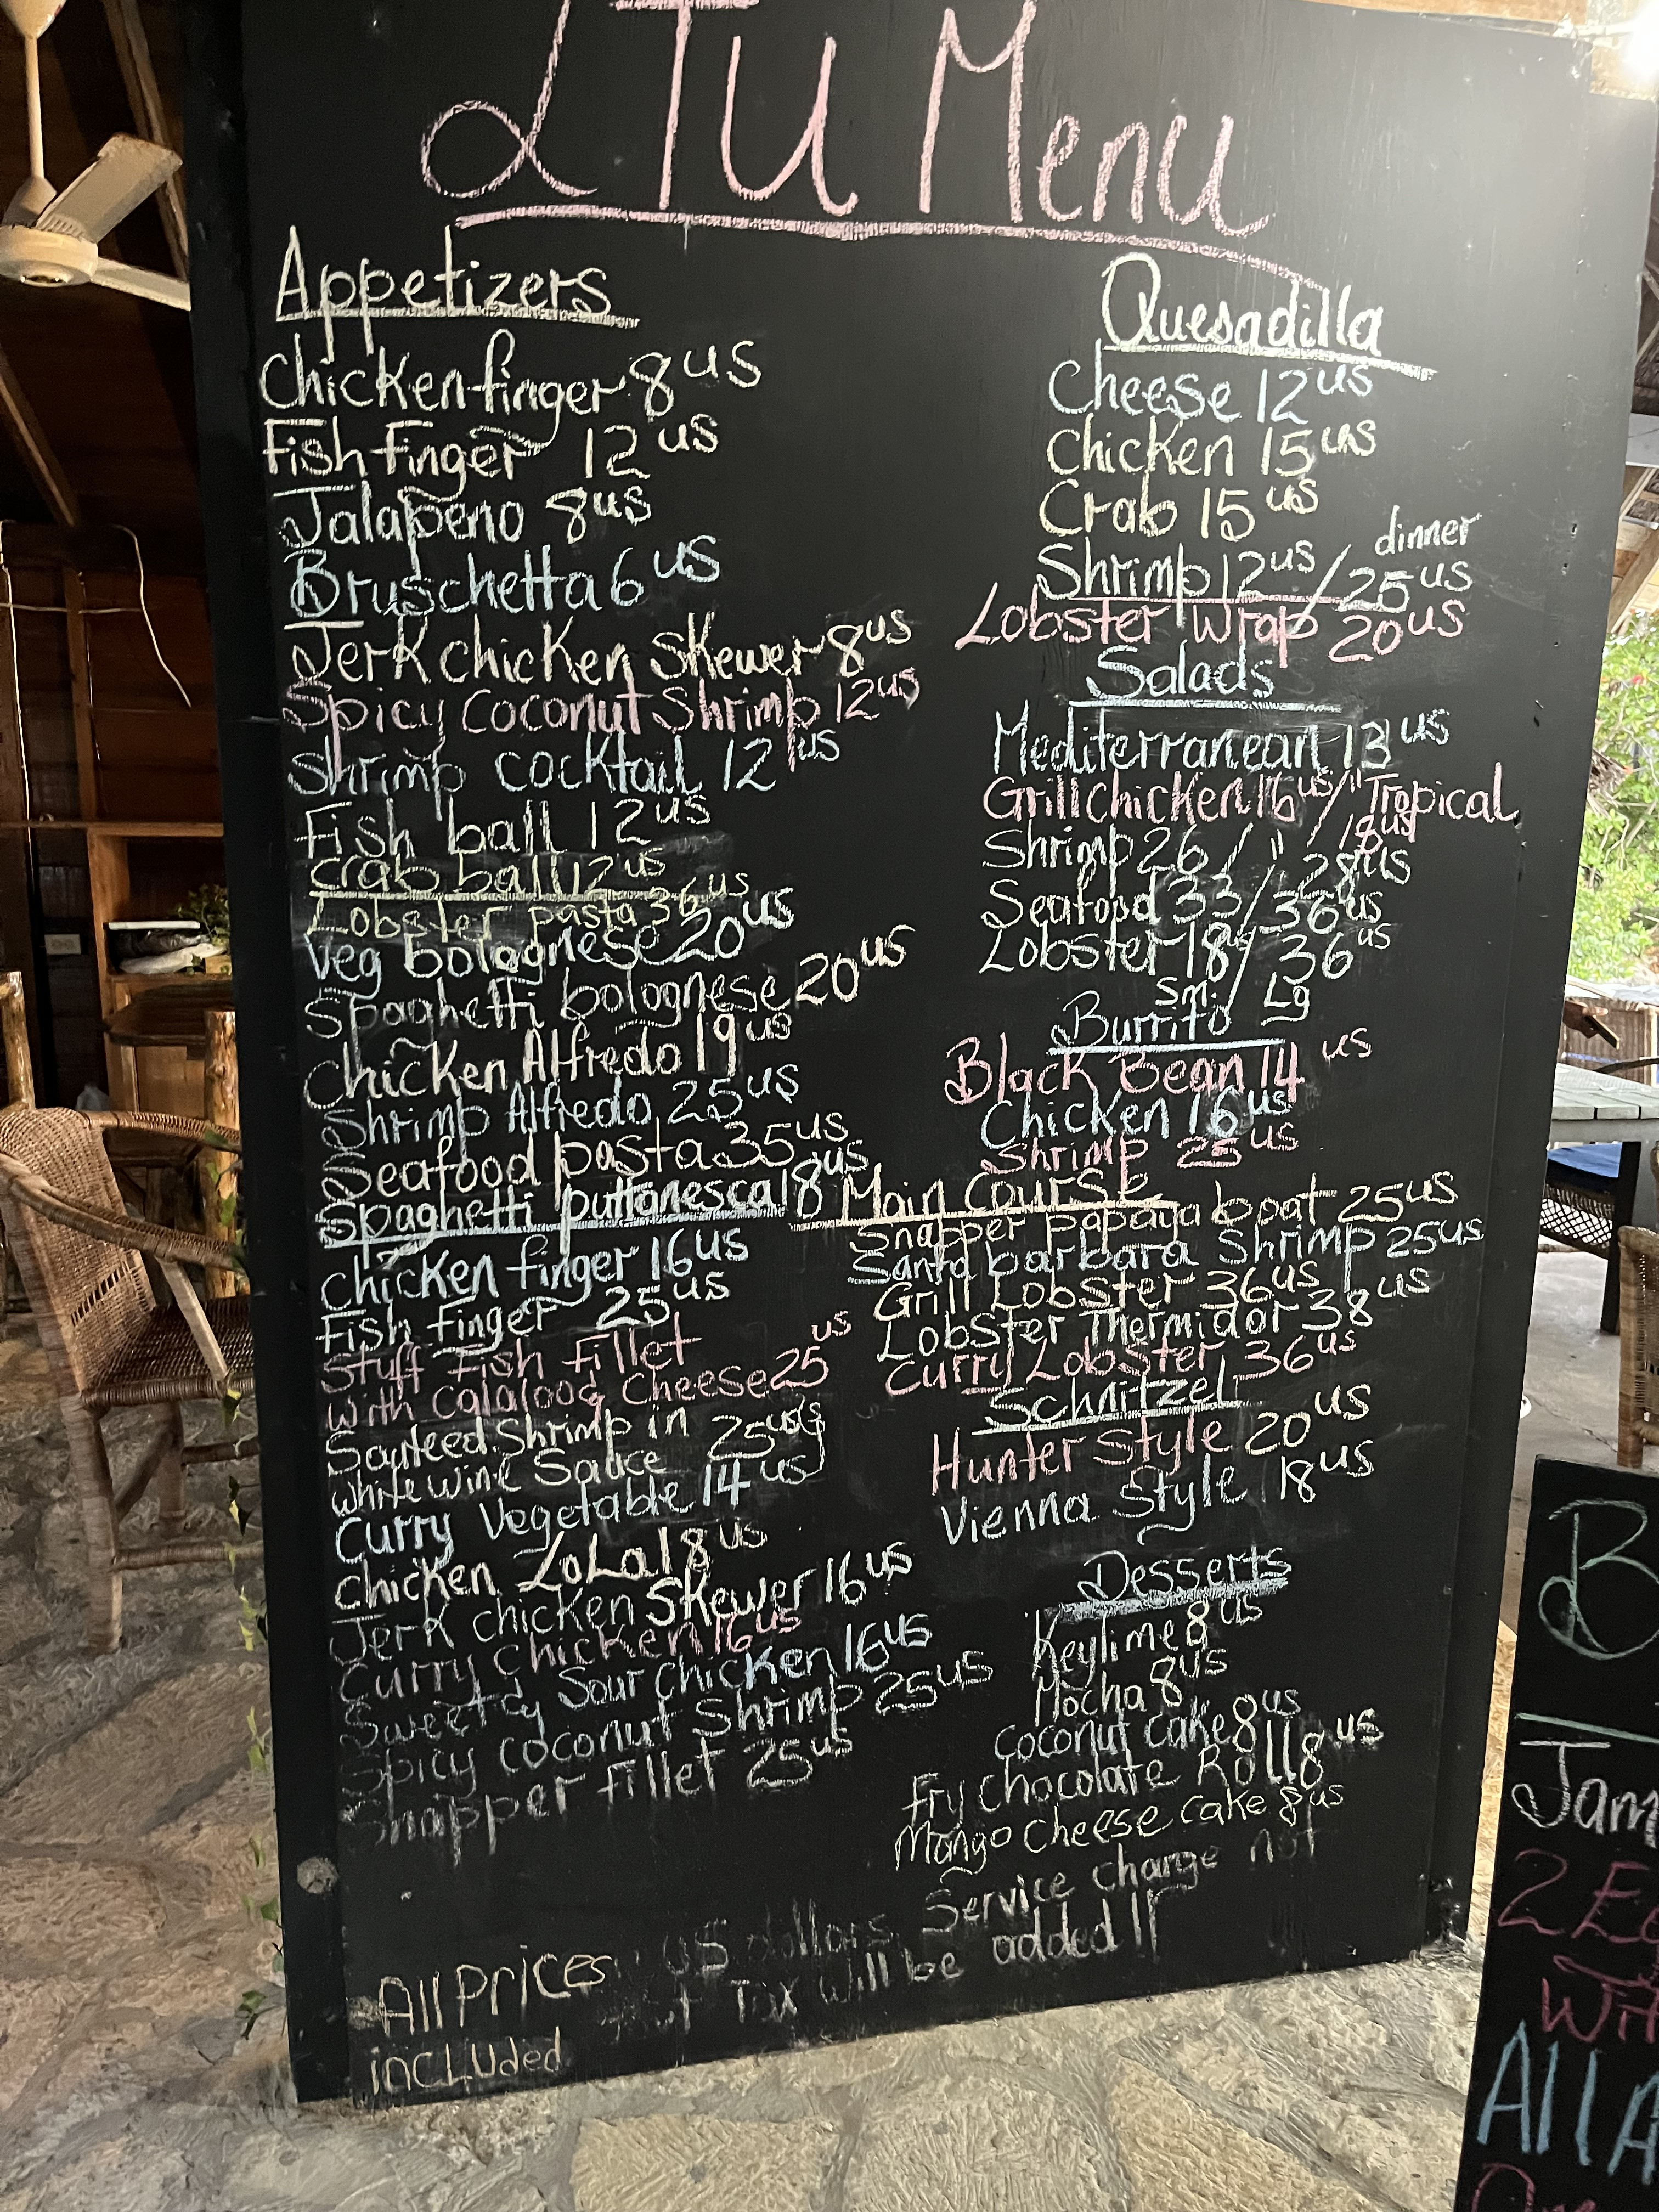 LTU Menu
Appetizers
Chicken finger 8 us
Fish Finger 12 us
Jalapeno 8 us
Bruschetta 6 us
Jerk chicken Skewer 8 us
Spicy Coconut Shrimp 12 us
Shrimp cocktail 12 us
Fish ball 12 us
crab ball 12 us
Lobster pasta 36 us
Veg bolognese 20 us
Spaghetti bolognese 20 us
Chicken Alfredo 19 us
Shrimp Alfredo 25 us
Seafood pasta 35 us
Spaghetti puttanesca 18 us
Chicken finger 16 us
Fish finger 25 us
Stuff Fish Fillet
with Calaloo & Cheese 25 us
Sauteed Shrimp in
white wine Sauce 25 us
Curry Vegetable 14 us
Chicken LoLa 18 us
Jerk chicken Skewer 16 us
Curry Chicken 16 us
Sweet & Sour Chicken 16 us
Spicy coconut Shrimp 25 us
Snapper fillet 25 us
Quesadilla
Cheese 12 us
Chicken 15 us
Crab 15 us
dinner
Shrimp 12 us / 25 us
Lobster Wrap 20 us
Salads
Mediterranean 13 us
Grill chicken 16 us / " Tropical
18 us
Shrimp 26 / " 28 us
Seafood 33 / 36 us
Lobster 18 / 36 us
sm. / Lg
Burrito
Black bean 14 us
Chicken 16 us
Shrimp 25 us
Main Course
Snapper papaya boat 25 us
Santa barbara Shrimp 25 us
Grill Lobster 36 us
Lobster Thermidor 38 us
Curry Lobster 36 us
Schnitzel
Hunter Style 20 us
Vienna Style 18 us
Desserts
Keylime 8 us
Mocha 8 us
Coconut cake 8 us
Fry chocolate Roll 8 us
Mango Cheese cake 8 us
All Prices US dollars Service change not
included Tax will be added !!
B
Jam
2 E
Wit
All A